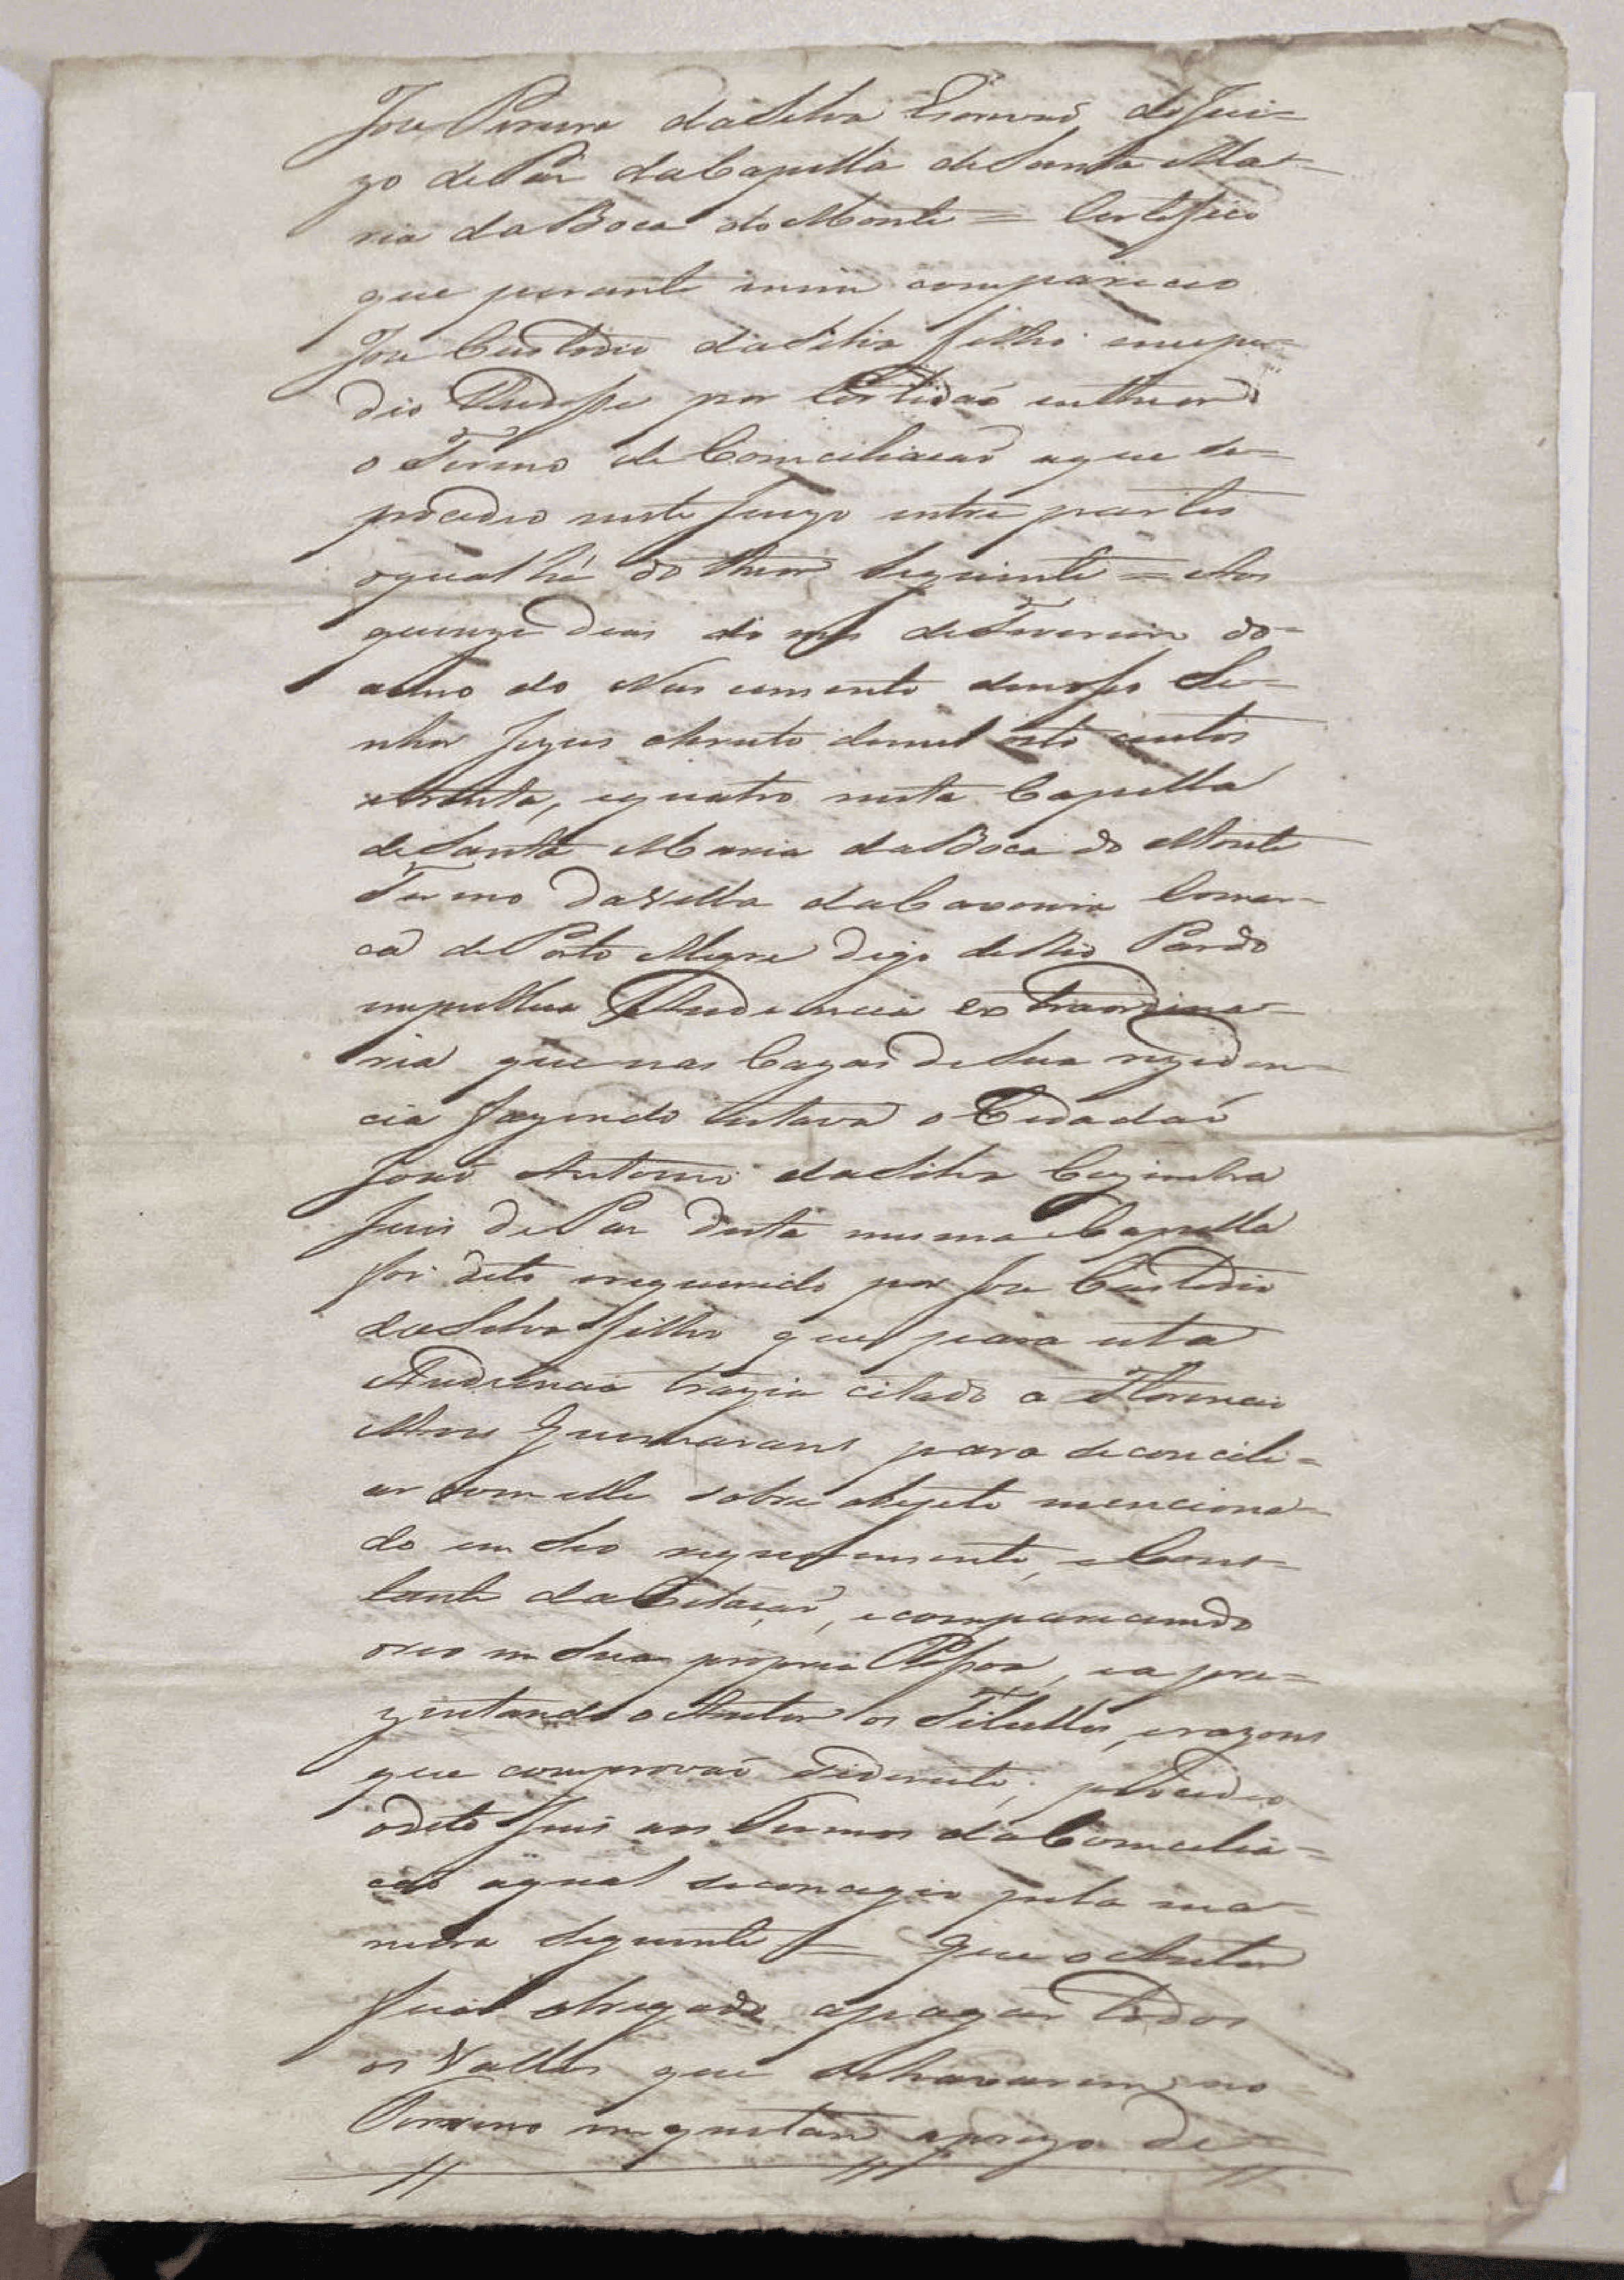 Jose Pereira da Silva Escrivaõ do Jui=
zo de Paz da Capella de Santa Ma=
ria da Boca do Monte = Certifico
que perante mim compareceo
Jose Custodio da Silva filho e me pe=
dio lhe desse por Certidaõ o theor do
o Termo de Comciliacaõ a que se=
procedeo neste Juizo entre partes
o qual hé do theor seguinte = Aos
quinze dias do mes de Fevereiro do=
anno do Nascimento de nosso Se=
nhor Jezus Christo de mil oito centos
e trinta, e quatro nesta Capella
de Santa Maria da Boca do Monte
Termo da Villa da Caxoeira Comar=
ca de Porto Alegre digo de Rio Pardo
em publica Audiencia extraordina=
ria que nas Cazas de Sua rezeden=
cia fazendo estava o Cidadaõ
Joaõ Antonio da Silva Cezimbra
Juis de Paz desta mesma Capella
foi dito e requerido por Jose Custodio
da Silva filho que para esta
Audiencia trazia citado a Florencio
Alves Guimarans para se concili=
ar com elle sobre objeto menciona=
do em seo requerimento, e Cons=
tante da Citaçaõ, e comparecendo
o reo em Sua propria Pessoa, e apre=
zentando o Autor os Titullos, e razons
que comprovaõ procedeo
o dito Juis aos Termos da Comcilia=
caõ a qual se conseguio pela ma=
neira seguinte = Que o Autor
fica obrigado a pagar todos
os Valles que se no=
Terreno em questaõ a prezo de=